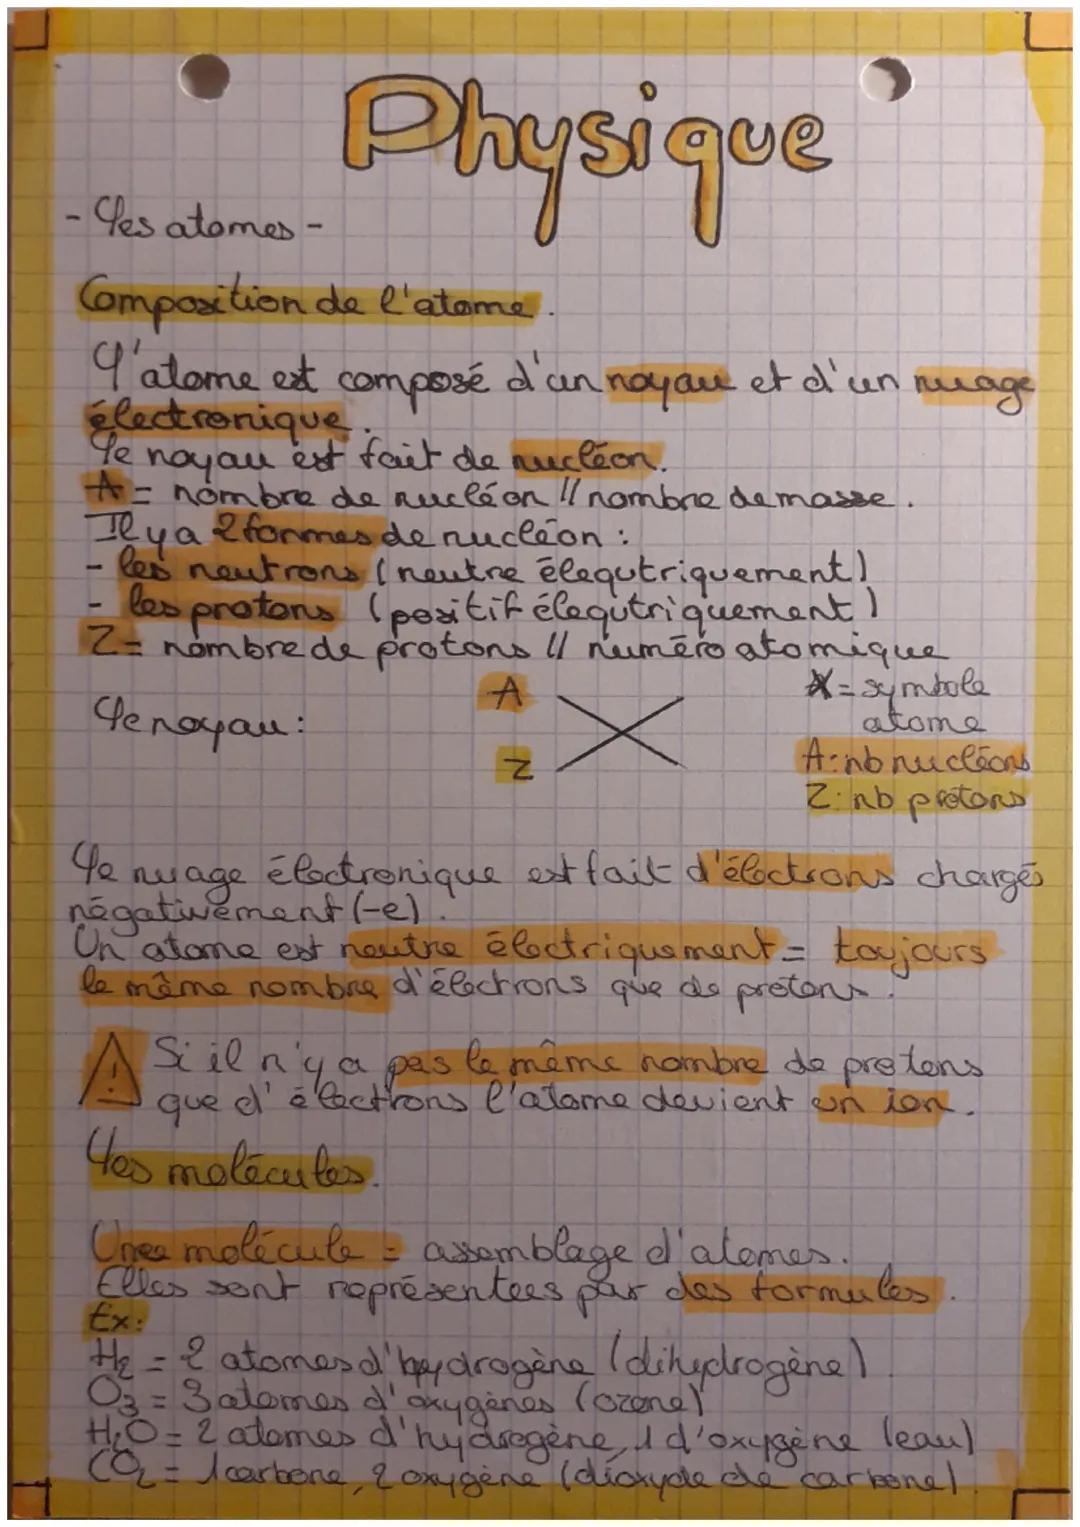 Physique
- Les atomes -
Composition de l'atome.
L'atome est composé d'un noyau et d'un nuage
électronique.
Le noyau est fait de nucléon.
A = nombre de nucléon // nombre de masse.
Il y a 2 formes de nucléon :
- les neutrons (neutre éleqутriquement)
- les protons (positif élequtriquement)
Z = nombre de protons // numéro atomique
Le noyau :
A
Z
X
X = symbole
atome
A : nb nucléons
Z : nb protons
Le nuage électronique est fait d'électrons chargés
négativement (-e).
Un atome est neutre électriquement = toujours
le même nombre d'électrons que de protons.
! Si il n'y a pas le même nombre de protons
que d'électrons l'atome devient un ion.
Les molécules.
Une molécule = assemblage d'atomes.
Elles sont représentées par des formules.
Ex :
H₂ = 2 atomes d'hydrogène (dihydrogène)
O₃ = 3 atomes d'oxygènes (ozone)
H₂O = 2 atomes d'hydrogène, 1 d'oxygène (eau)
CO₂ = 1 carbone, 2 oxygène (dioxyde de carbone).